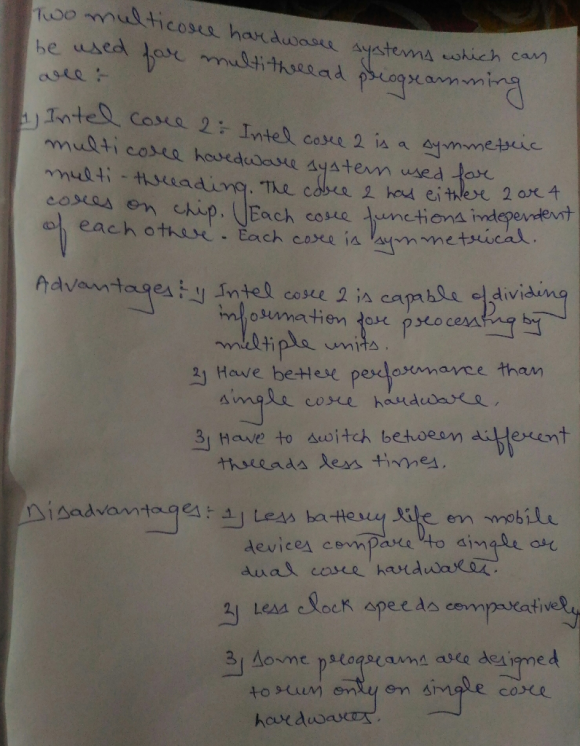 Two multicore hardware systems which can
be used for multithread programming
are :-
1) Intel core 2 :- Intel core 2 is a symmetric
multicore hardware system used for
multi-threading. The core 2 has either 2 or 4
cores on chip. Each core functions independent
of each other. Each core is symmetrical.
Advantages :- 1) Intel core 2 is capable of dividing
information for processing by
multiple units.
2) Have better performance than
single core hardware.
3) Have to switch between different
threads less times.
Disadvantages :- 1) Less battery life on mobile
devices compare to single or
dual core hardwares.
2) Less clock speeds comparatively
3) Some programs are designed
to run only on single core
hardwares.